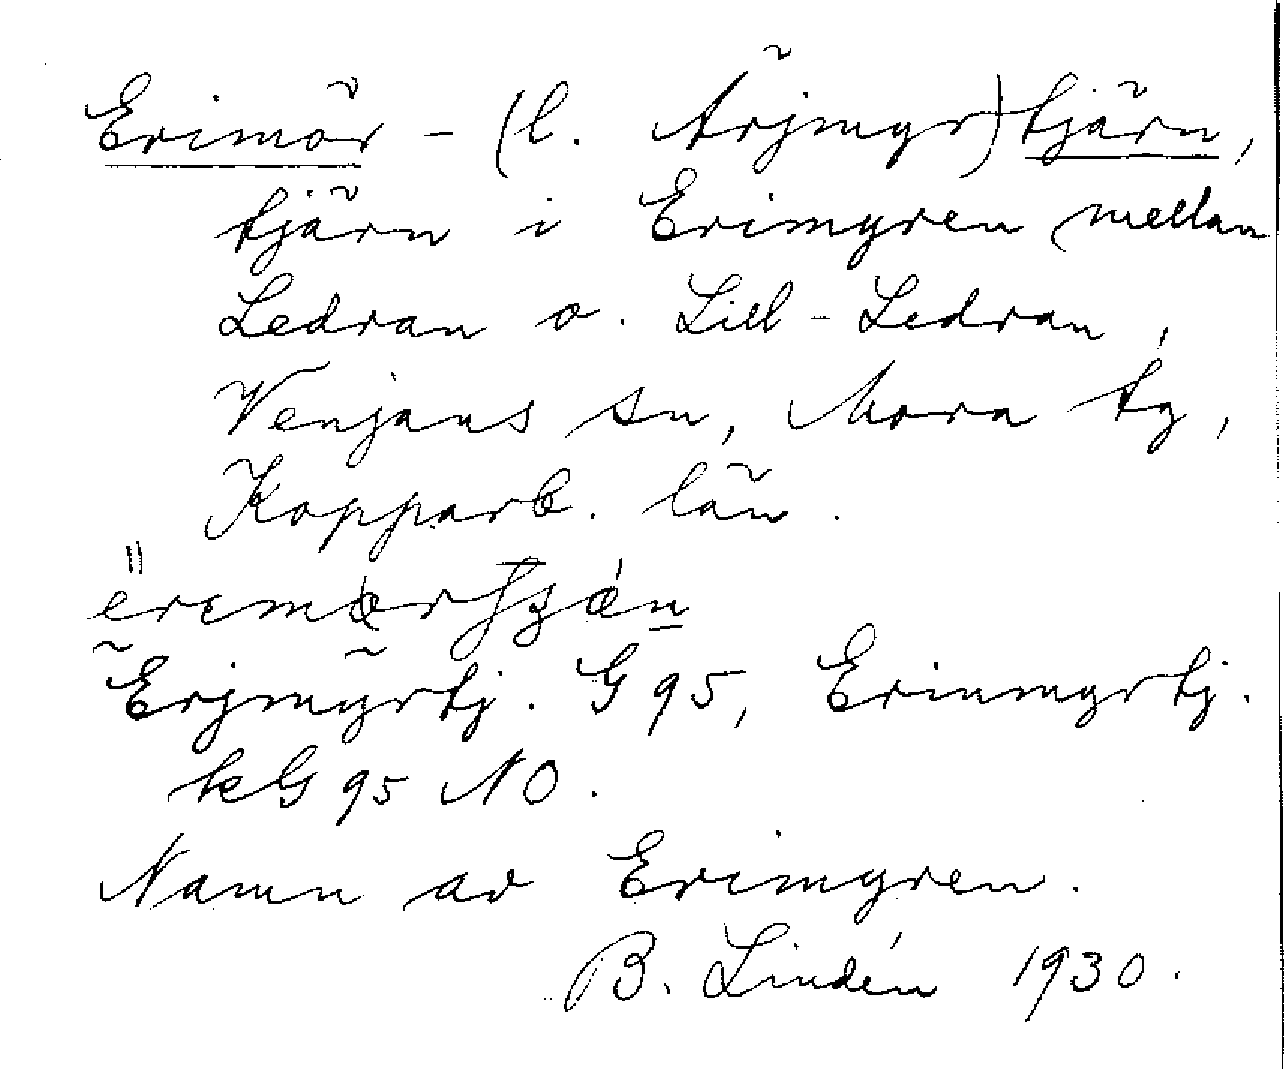 Erimör - (l. Ärjmyr)tjärn,
tjärn i Erimyren mellan
Ledran o. Lill-Ledran,
Venjans sn, Mora tg,
Kopparb. län.
Erjmyrtj. G 95, Erinmyrtj.
kG 95 NO.
Namn av Erimyren.
B. Lindén 1930.